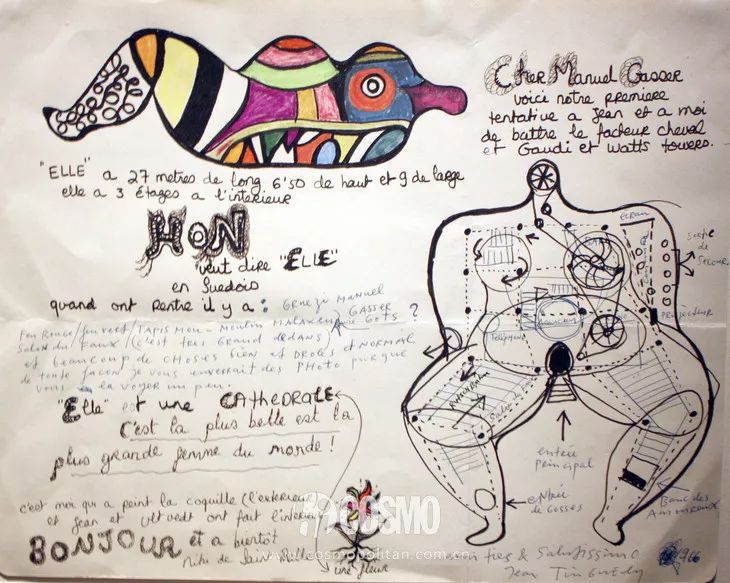 Cher Manuel Gasser
voici notre premiere
tentative a Jean et a moi
de battre le facteur cheval
et Gaudi et Watts towers.
"ELLE" a 27 metres de long 6'50 de haut et 9 de large
elle a 3 étages a l'interieur
HON
veut dire "ELLE"
en Suedois
quand ont rentre il y a :
MANUEL
GASSER
Feu Rouge/feu vert/TAPIS MOU - Moulin
Salon du FAUX/(c'est tres GRAND dedans)
et beaucoup de CHOSES bien et DROLES et NORMAL
de toute facon je vous enverait des PHOTO pour que
vous la voyer un peu.
"Elle" est une CATHEDRALE
C'est la plus belle est la
plus grande femme du monde !
c'est moi qui a peint la coquille (l'exterieur
et Jean et Ultvedt ont fait l'interieur
BONJOUR et a bientôt
Niki de Saint Phalle
une fleur
ECRAN
Sortie
de
Secours
PROJECTEUR
entrée
principal
entrée
de Gosses
Banc des
Amoureux
COSMO
www.cosmopolitan.com.cn
& Salutissimo
Jean Tinguely
1966